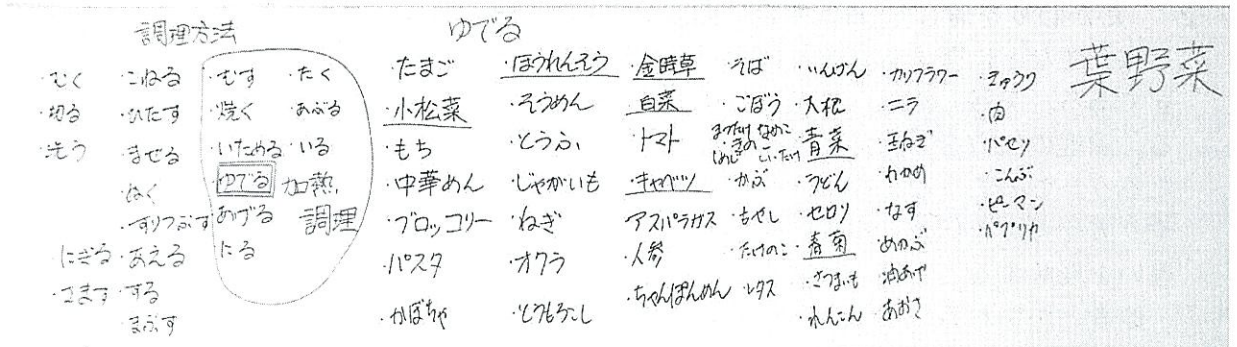 調理方法
・むく
・切る
・洗う
・こねる
・ひたす
・まぜる
・ぬく
・すりつぶす
・にぎる
・あえる
・さます
・する
・まぶす
・むす
・たく
・焼く
・あぶる
・いためる
・いる
・ゆでる
加熱
調理
あげる
・にる
ゆでる
・たまご
・小松菜
・もち
・中華めん
・ブロッコリー
・パスタ
・かぼちゃ
・ほうれんそう
・そうめん
・とうふ
・じゃがいも
・ねぎ
・オクラ
・とうもろこし
・金時草
・白菜
・トマト
・キャベツ
・アスパラガス
・人参
・ちゃんぽんめん
・そば
・ごぼう
まつたけ なめこ
・きのこ
しめじ しいたけ
・かぶ
・もやし
・たけのこ
・レタス
・いんげん
・大根
・青菜
・うどん
・セロリ
・春菊
・さつまいも
・れんこん
・カリフラワー
・ニラ
・玉ねぎ
・わかめ
・なす
・めかぶ
・油あげ
・あおさ
・きゅうり
・肉
・パセリ
・こんぶ
・ピーマン
・パプリカ
葉野菜